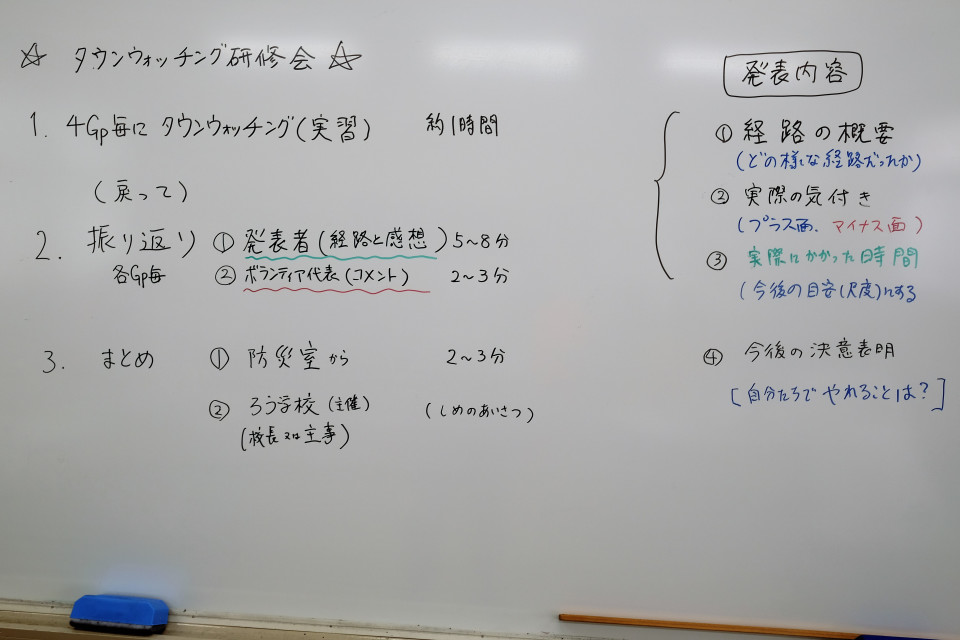 ☆ タウンウォッチング研修会 ☆
1. 4Gp毎に タウンウォッチング(実習) 約1時間
(戻って)
2. 振り返り ① 発表者(経路と感想) 5~8分
各Gp毎 ② ボランティア代表(コメント) 2~3分
3. まとめ ① 防災室から 2~3分
② ろう学校(主催) (しめのあいさつ)
(校長又は主事)
発表内容
① 経路の概要
(どの様な経路だったか)
② 実際の気付き
(プラス面、マイナス面)
③ 実際にかかった時間
(今後の目安(尺度)にする
④ 今後の決意表明
[自分たちでやれることは?]